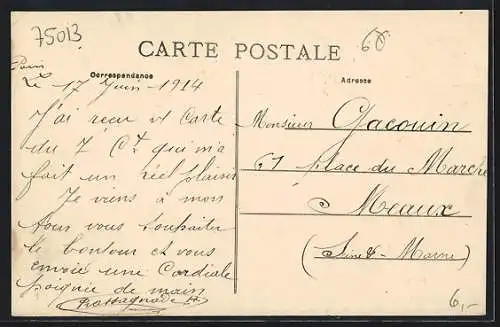 75013
60
CARTE POSTALE
Correspondance
Adresse
Paris
Le 17 Juin 1914
J'ai reçu vt Carte
du 7 Ct qui m'a
fait un réel plaisir
Je viens à mon
tour vous souhaiter
le bonjour et vous
envoie une Cordiale
poignée de main
Monsieur Gacouin
61 place du Marché
à Meaux
(Seine & Marne)
6,-